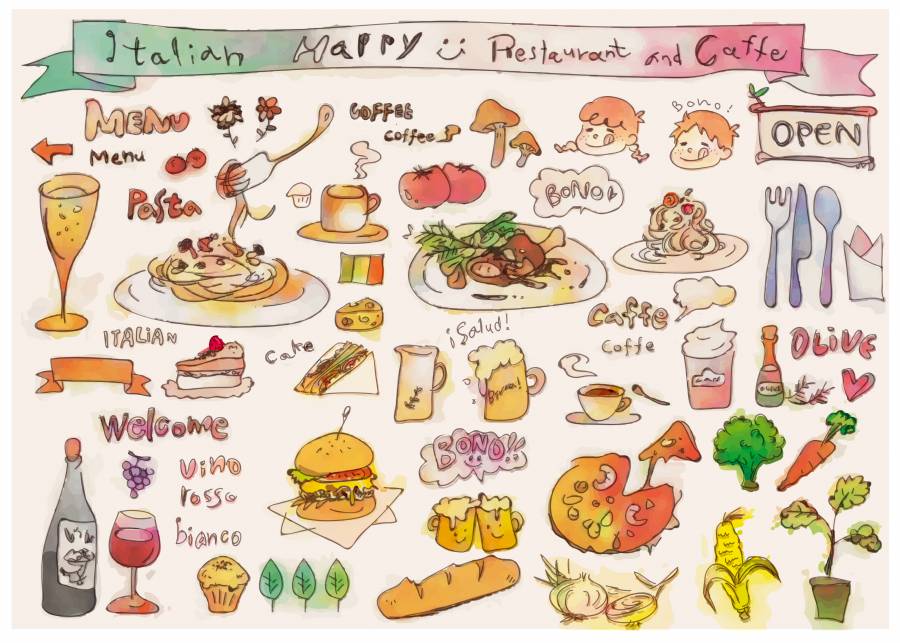 Italian Happy Restaurant and Caffe
MENU
Menu
COFFEE
coffee
Bono!
OPEN
Pasta
BONO!
ITALIAN
Cake
¡Salud!
Caffe
Coffe
OLIVE
Welcome
BONO!!
Vino
rosso
bianco